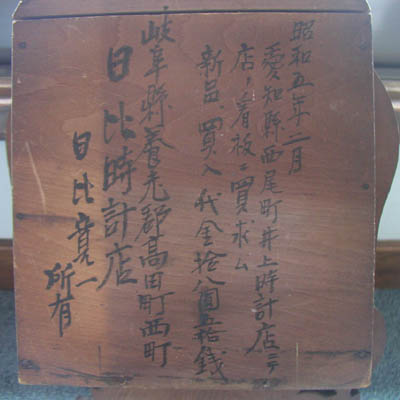 昭和五年二月
愛知縣西尾町井上時計店ニテ
店ノ看板ニ買求ム
新品買入代金拾八圓五拾銭
岐阜縣養老郡高田町西町
日比時計店
日比寛一
所有